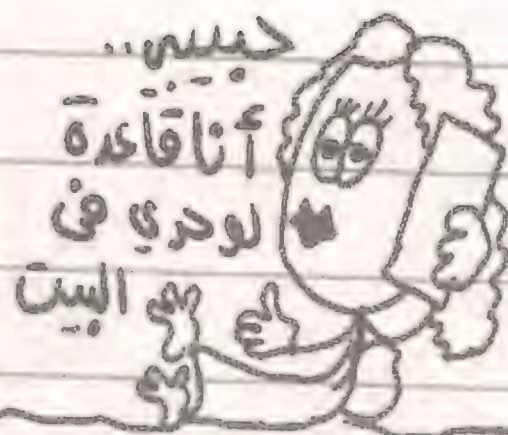 حبيبي..
أنا قاعدة
لوحدي في
البيت